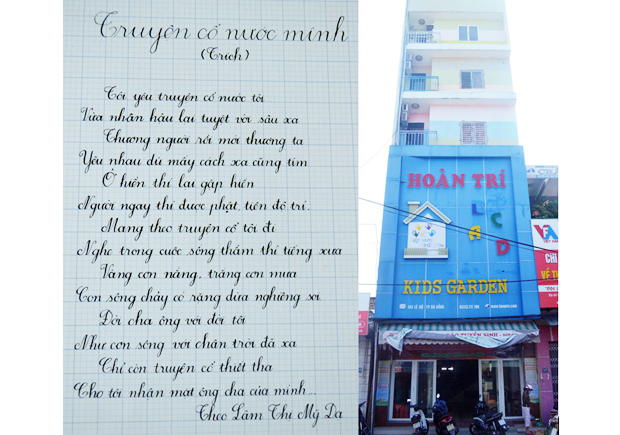 Truyện cổ nước mình
(Trích)
Tôi yêu truyện cổ nước tôi
Vừa nhân hậu lại tuyệt vời sâu xa
Thương người rồi mới thương ta
Yêu nhau dù mấy cách xa cũng tìm
Ở hiền thì lại gặp hiền
Người ngay thì được phật, tiên độ trì.
Mang theo truyện cổ tôi đi
Nghe trong cuộc sống thầm thì tiếng xưa
Vàng cơn nắng, trắng cơn mưa
Con sông chảy có rặng dừa nghiêng soi
Đời cha ông với đời tôi
Như con sông với chân trời đã xa
Chỉ còn truyện cổ thiết tha
Cho tôi nhận mặt ông cha của mình...
Theo Lâm Thị Mỹ Dạ
HOÀN TRÍ
KIDS GARDEN